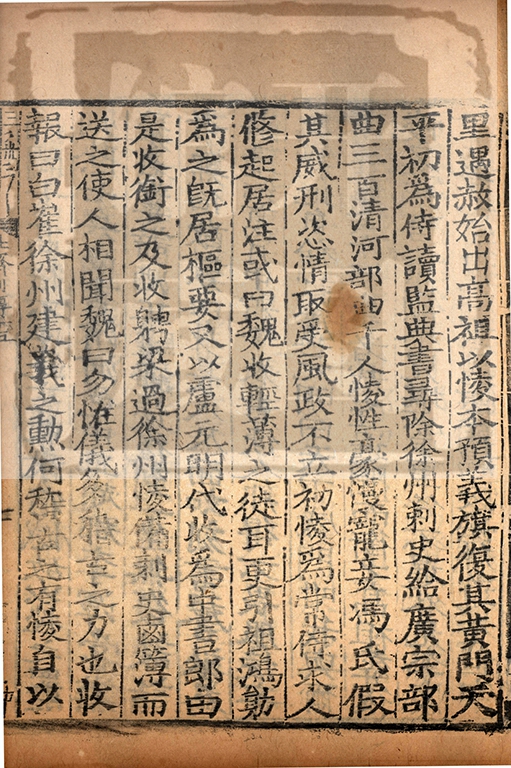 里遇赦始出高祖以㥄本預義旗復其黄門天
平初爲侍讀監典書尋除徐州刺史給廣宗部
曲三百清河部曲千人㥄性豪慢寵妾馮氏假
其威刑恣情取受風政不立初㥄爲常侍求人
修起居注或曰魏收輕薄之徒耳更引祖鴻勳
為之既居樞要又以盧元明代收爲中書郎由
是收銜之及收聘梁過徐州㥄備刺史鹵簿而
送之使人相聞魏曰勿怪儀多稽古之力也收
報曰白崔徐州建義之勲何稽古之有㥄自以